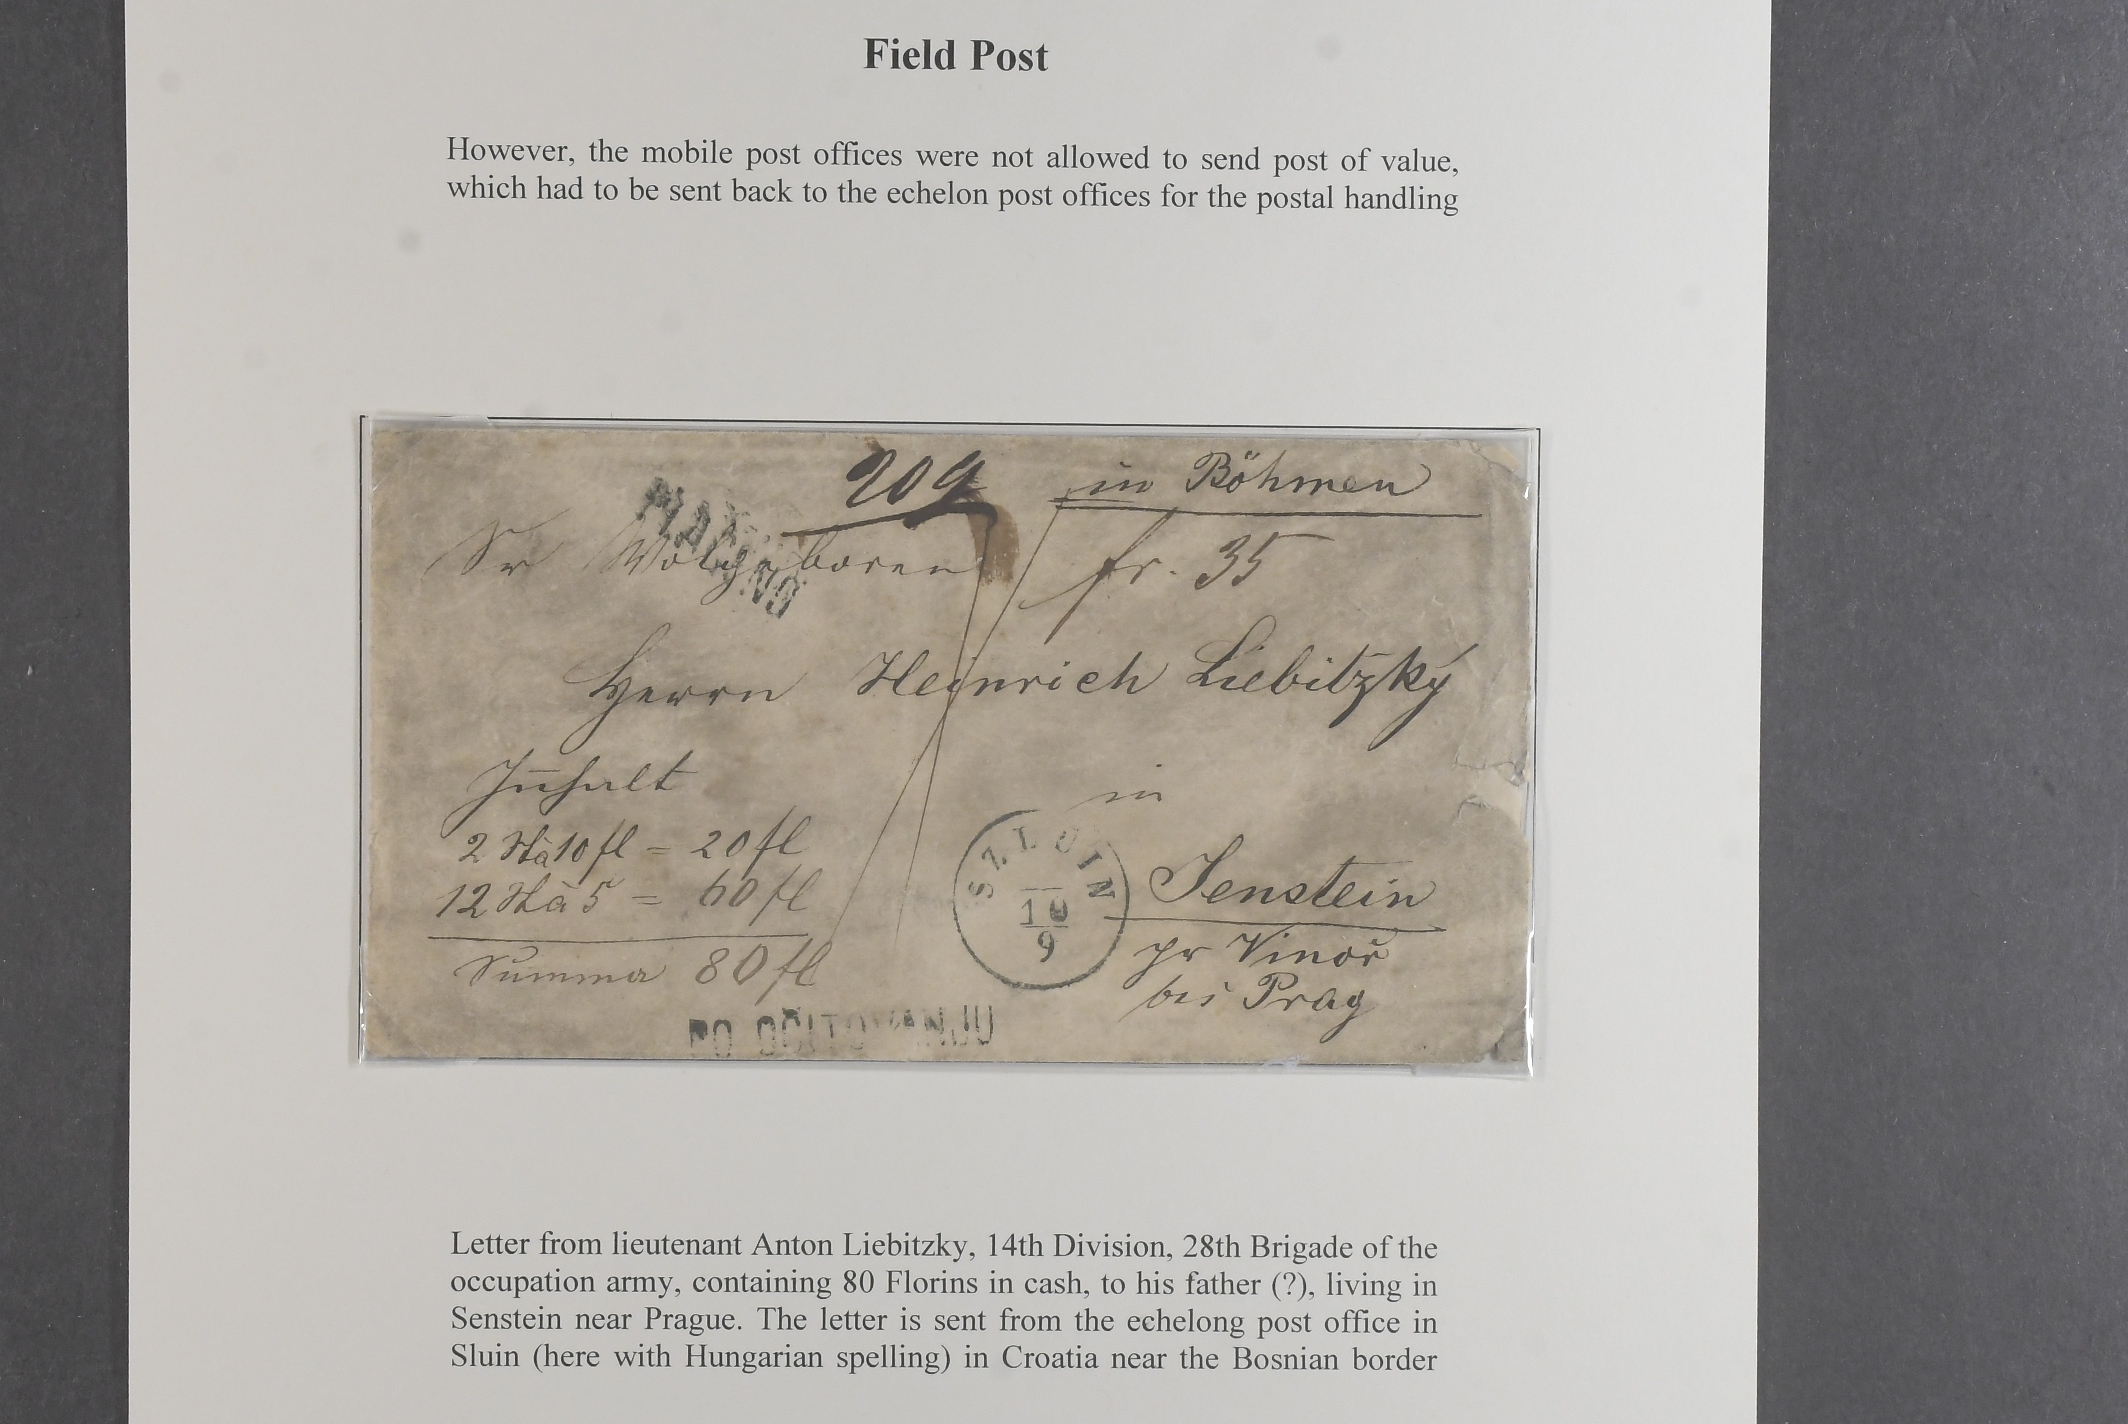 Field Post
However, the mobile post offices were not allowed to send post of value,
which had to be sent back to the echelon post offices for the postal handling
209 in Böhmen
Sr Wolgeboren fr. 35
Herrn Heinrich Liebitzky
Inhalt
in
2 St à 10 fl = 20 fl
12 St à 5 = 60 fl
SZLUIN
10
9
Jenstein
pr Vinoř
Summa 80 fl
bei Prag
PO OČITOVANJU
Letter from lieutenant Anton Liebitzky, 14th Division, 28th Brigade of the
occupation army, containing 80 Florins in cash, to his father (?), living in
Senstein near Prague. The letter is sent from the echelong post office in
Sluin (here with Hungarian spelling) in Croatia near the Bosnian border